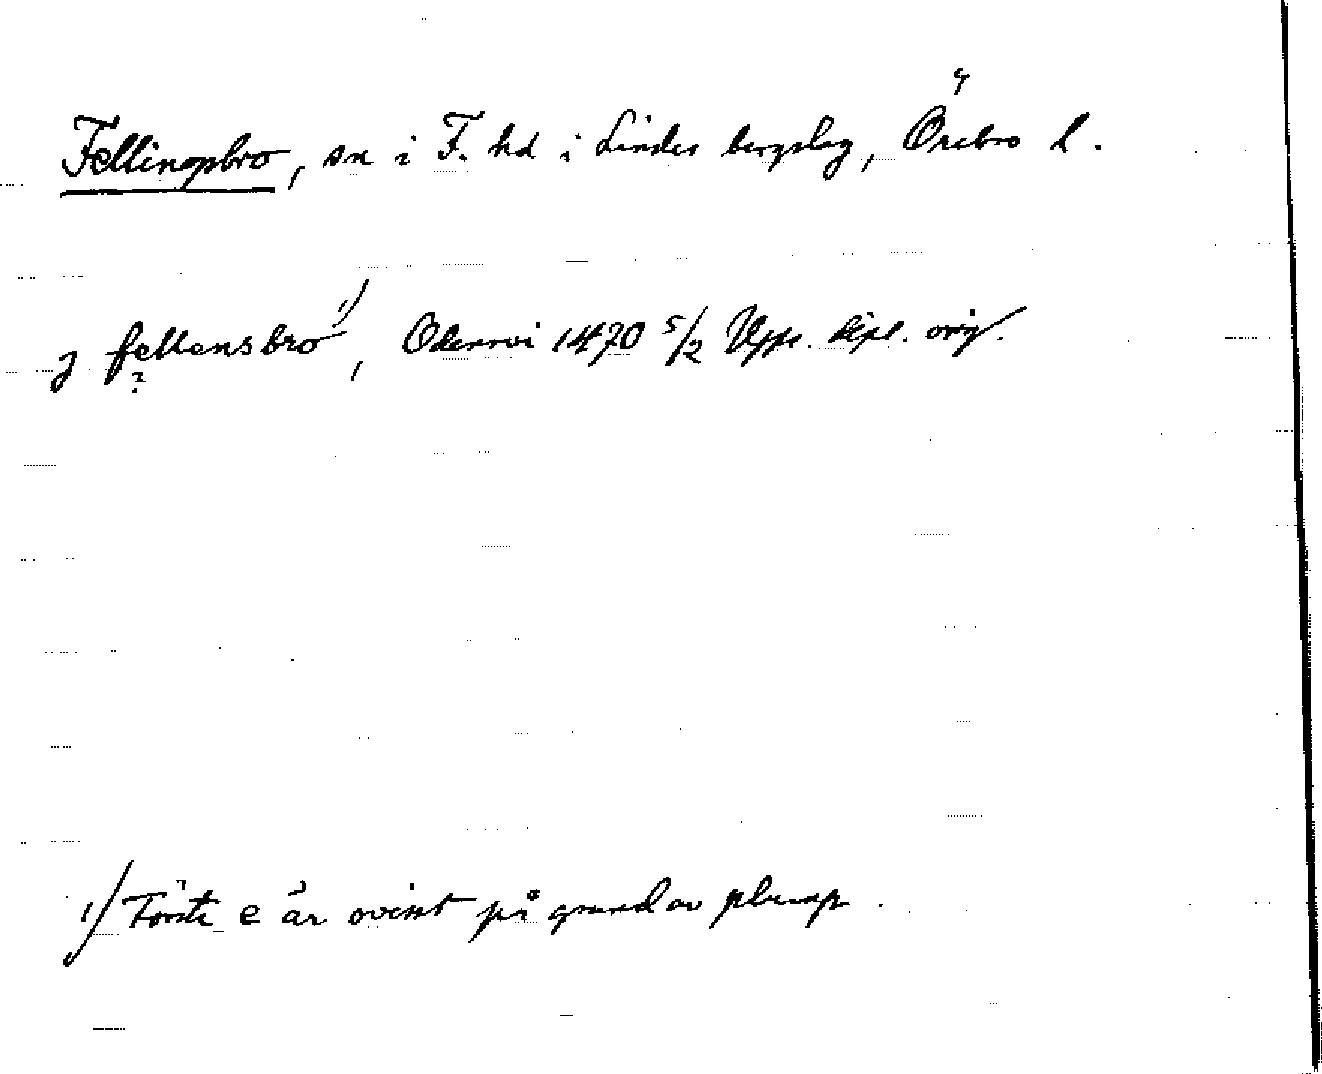 Fellingsbro, sn i F. hd i Lindes bergslag, Örebro l.
J fellensbro 1), Odensvi 1470 5/2 Upps. dipl. orig.
?
1) Förste e är ovisst på grund av plump.